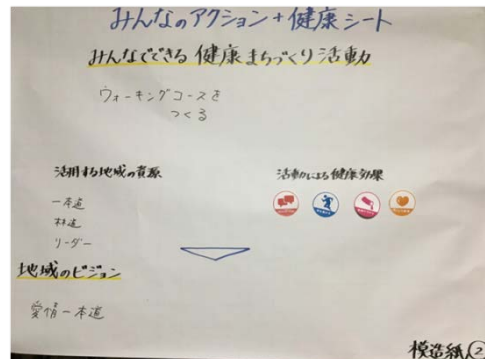 みんなのアクション+健康シート
みんなでできる健康まちづくり活動
ウォーキングコースを
つくる
活用する地域の資源
一本道
林道
リーダー
活動による健康効果
地域のビジョン
愛情一本道
模造紙②